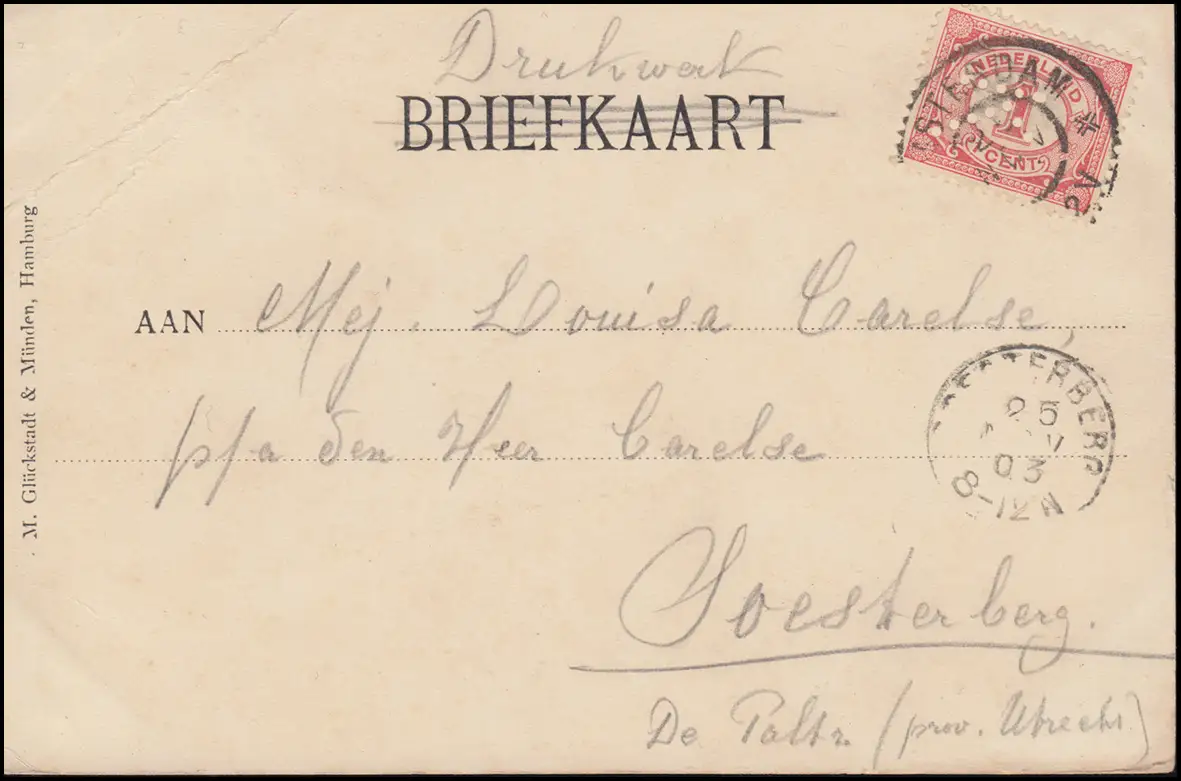 Drukwerk
BRIEFKAART
NEDERLAND
1
CENT
AAN Mej. Louisa Carelse,
p/a den Heer Carelse
Soesterberg.
De Paltz (prov. Utrecht)
M. Glückstadt & Münden, Hamburg
25
NOV
03
8-12N